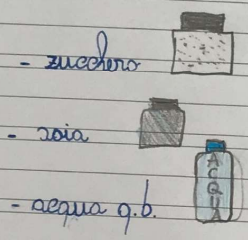 - zucchero
- soia
- acqua q.b.
ACQUA